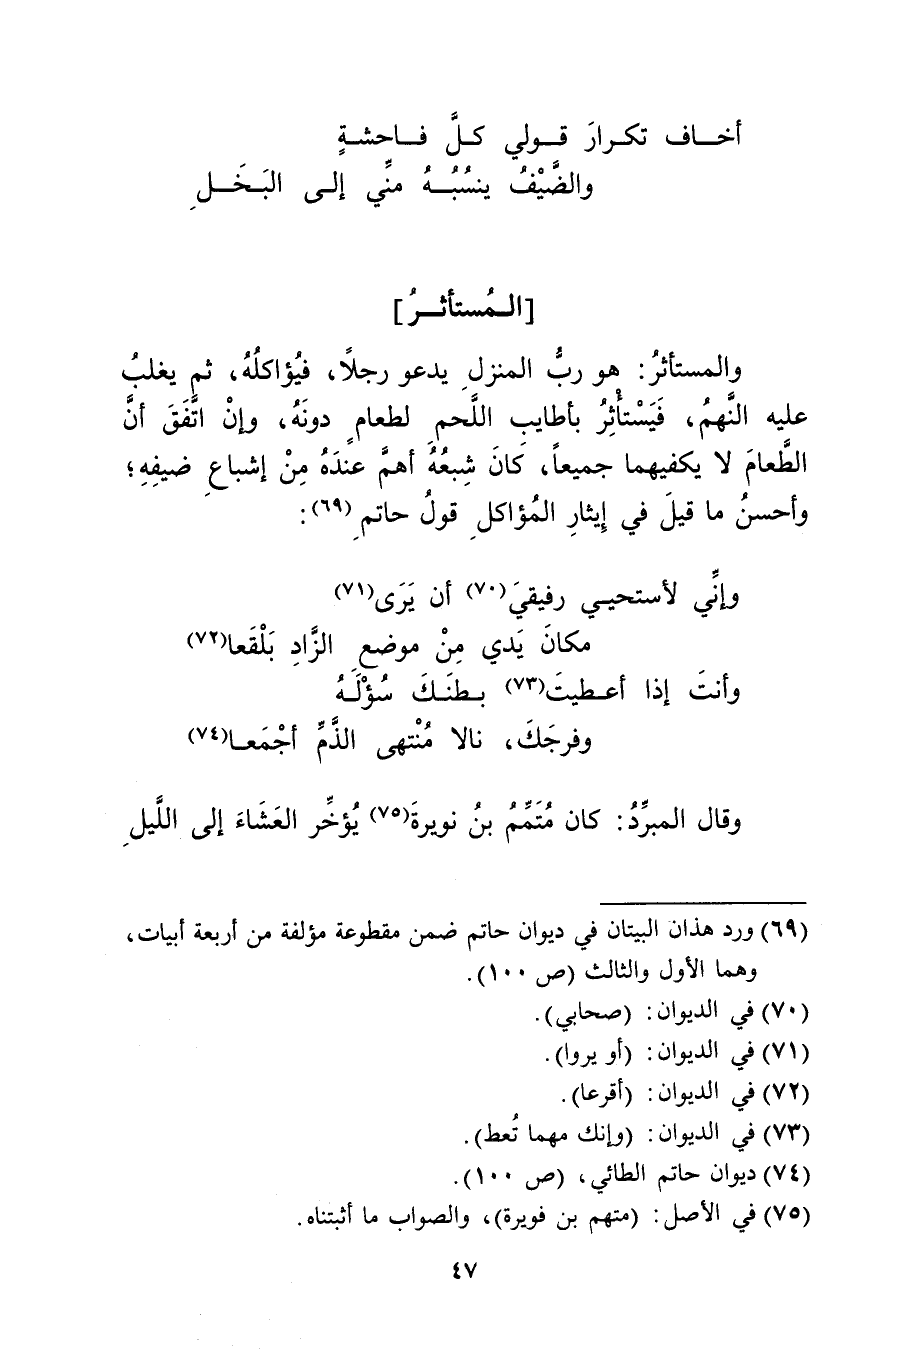 أخــاف تكـرارَ قـولي كـلَّ فـاحشـةٍ
والضَّيْفُ ينسُبُـهُ منِّي إلى البَـخَـلِ
[المُستأثـرُ]
والمستأثرُ: هو ربُّ المنزلِ يدعو رجلاً، فيُؤاكلُهُ، ثم يغلبُ
عليه النَّهمُ، فَيَسْتأْثِرُ بأطايبِ اللَّحمِ لطعامٍ دونَهُ، وإنْ اتَّفَقَ أنَّ
الطَّعامَ لا يكفيهما جميعاً، كانَ شِبعُهُ أهمَّ عندَهُ مِنْ إشباعِ ضيفِهِ؛
وأحسنُ ما قيلَ في إيثارِ المُؤاكلِ قولُ حاتمٍ (٦٩):
وإنِّي لأستحيـي رفيقيَ(٧٠) أن يَرَى(٧١)
مكانَ يَدي مِنْ موضعِ الزَّادِ بَلْقَعا(٧٢)
وأنتَ إذا أعـطيتَ(٧٣) بـطنَـكَ سُؤْلَـهُ
وفرجَكَ، نالا مُنْتهى الذَّمِّ أجْمَعـا(٧٤)
وقال المبرِّدُ: كان مُتَمِّمُ بنُ نويرةَ(٧٥) يُؤخِّر العَشَاءَ إلى اللَّيلِ
(٦٩) ورد هذان البيتان في ديوان حاتم ضمن مقطوعة مؤلفة من أربعة أبيات،
وهما الأول والثالث (ص ١٠٠).
(٧٠) في الديوان: (صحابي).
(٧١) في الديوان: (أو يروا).
(٧٢) في الديوان: (أقرعا).
(٧٣) في الديوان: (وإنك مهما تُعط).
(٧٤) ديوان حاتم الطائي، (ص ١٠٠).
(٧٥) في الأصل: (متهم بن فويرة)، والصواب ما أثبتناه.
٤٧